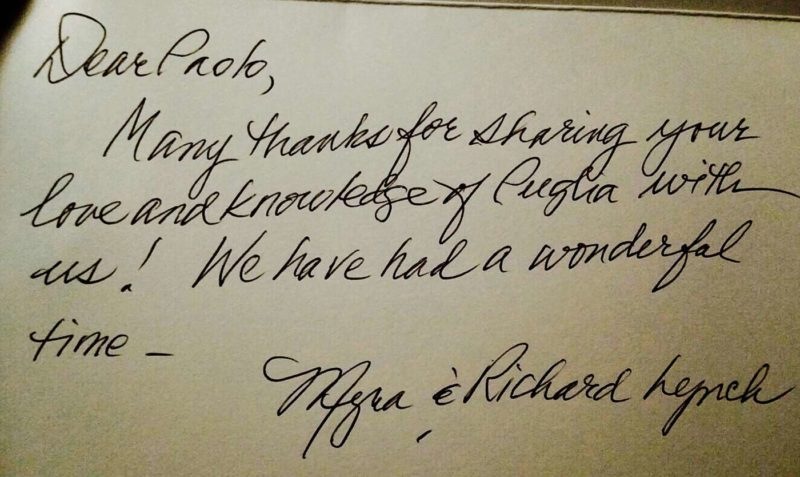 Dear Paolo,
Many thanks for sharing your
love and knowledge of Puglia with
us! We have had a wonderful
time –
Myra & Richard Lynch